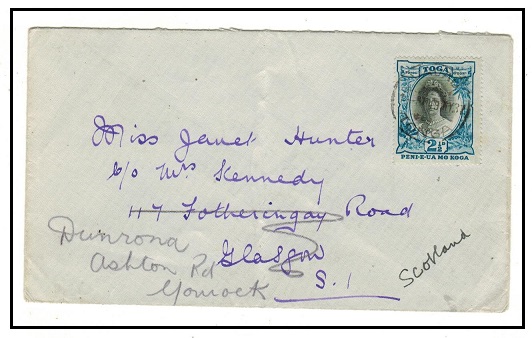 TOGA
2½D
PENI-E-UA MO KOGA
Miss Janet Hunter
c/o Mrs Kennedy
117 Fotheringay Road
Glasgow
S. 1
Scotland
Dunrona
Ashton Rd
Gourock